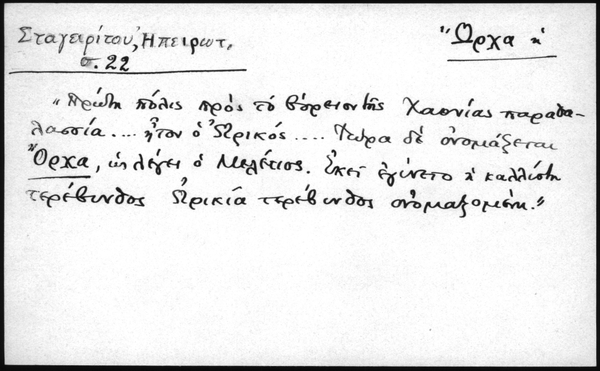 Σταγειρίτου, Ηπειρωτ.
σ. 22
Ὤρχα ἡ
"Πρώτη πόλις πρὸς τὸ βόρειον τῆς Χαονίας παραθα-
λασσία.... ἦτον ὁ Ὠρικός.... Τώρα δὲ ὀνομάζεται
Ὄρχα, ὡς λέγει ὁ Μελέτιος. Ἐκεῖ ἐγίνετο ἡ καλλίστη
τερέβινθος Ὠρικία τερέβινθος ὀνομαζομένη."